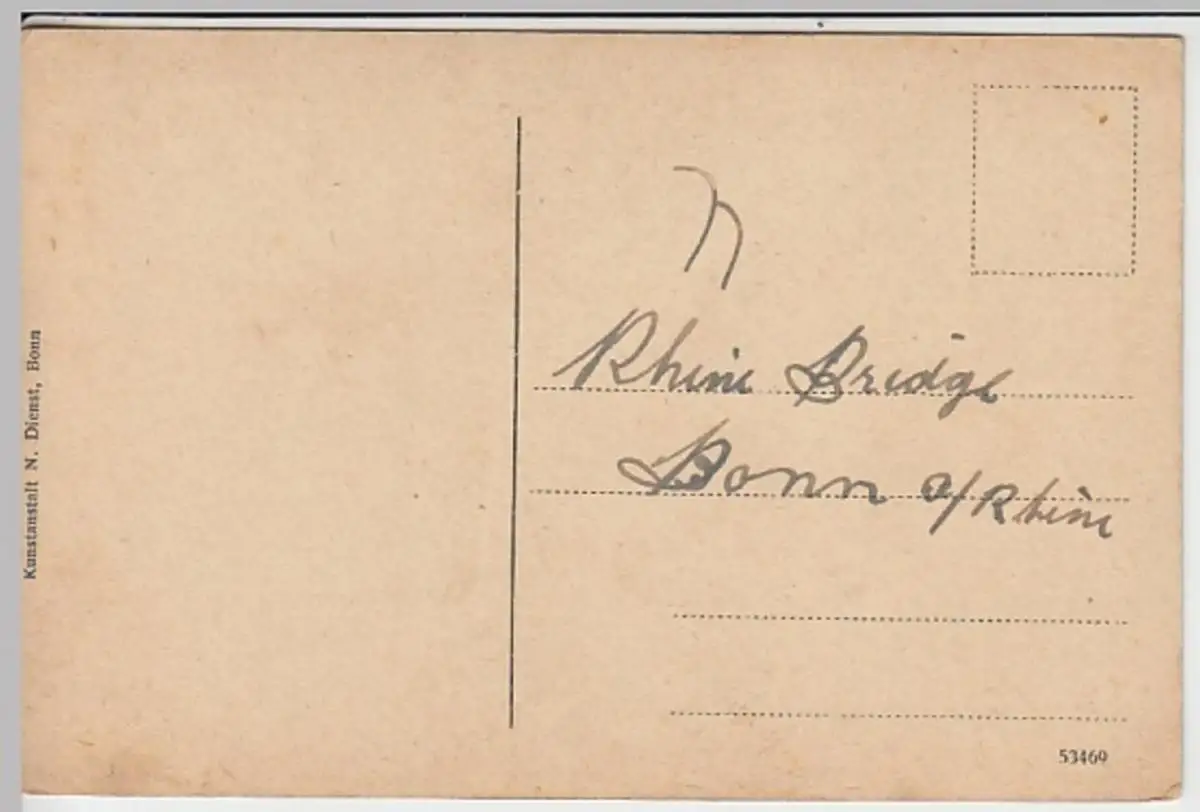 Kunstanstalt N. Dienst, Bonn
Rhine Bridge
Bonn a/Rhine
53469